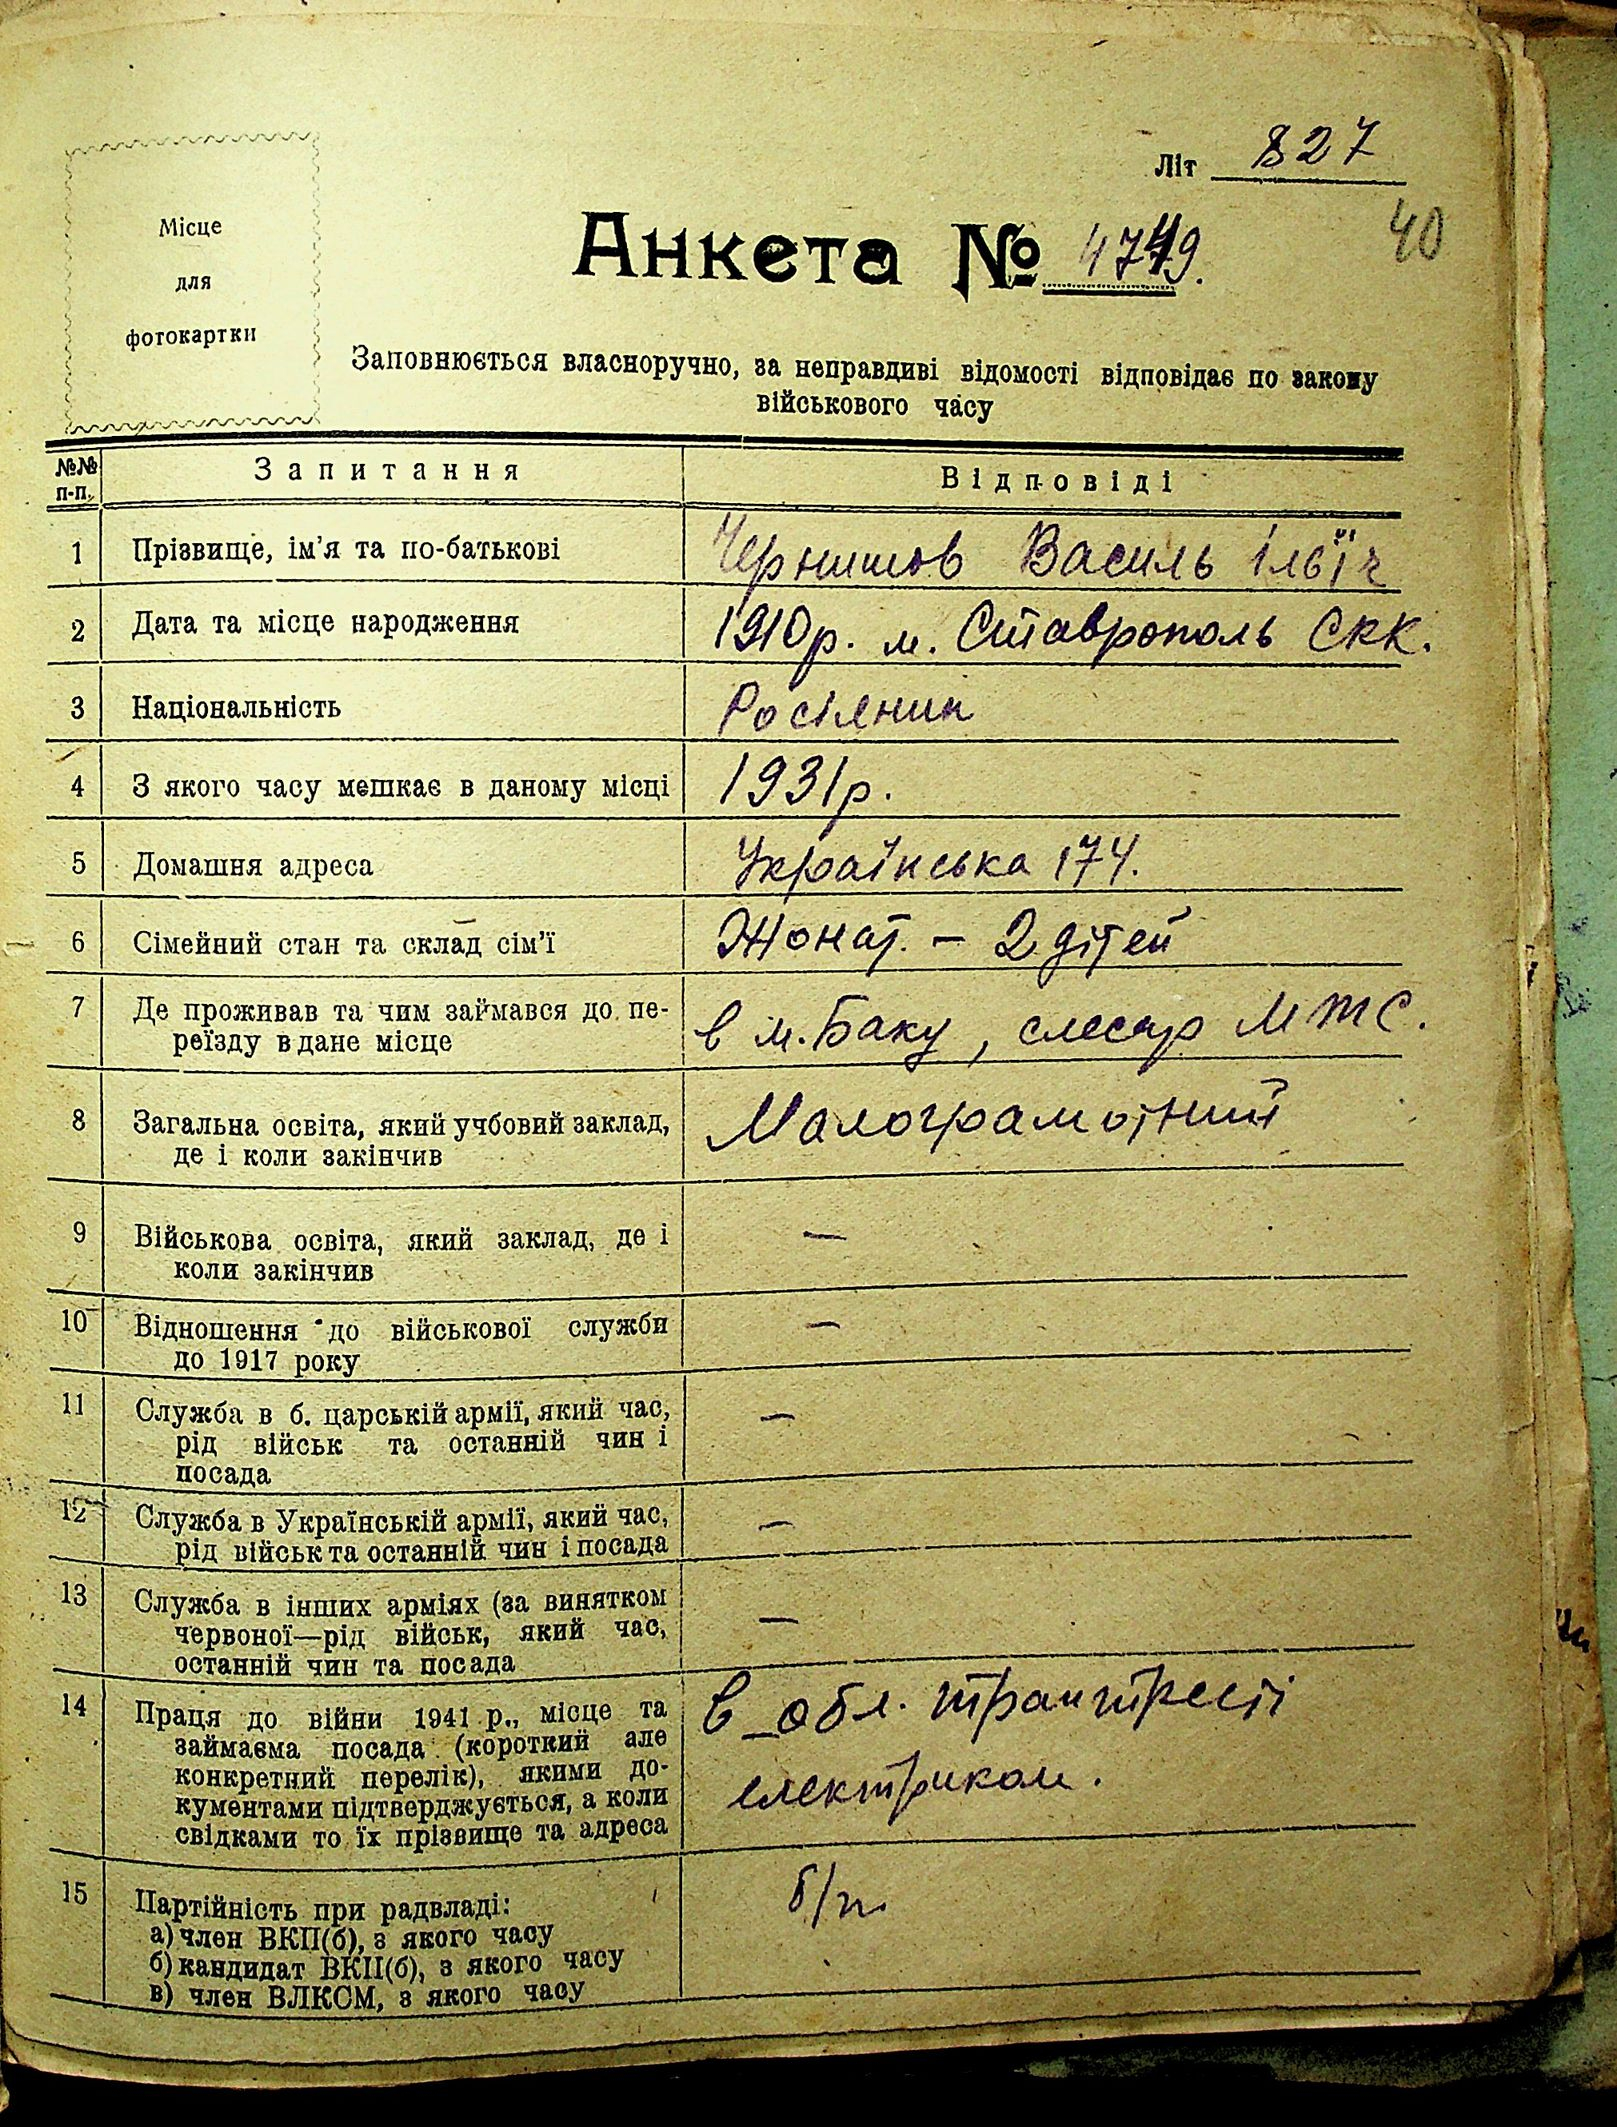 Літ 827
40
Місце
для
фотокартки
Анкета № 4749.
Заповнюється власноручно, за неправдиві відомості відповідає по закону
військового часу
№№ п-п. Запитання Відповіді
1 Прізвище, ім'я та по-батькові Чернишов Василь Ільїч
2 Дата та місце народження 1910р. м. Ставрополь СКК.
3 Національність Росіянин
4 З якого часу мешкає в даному місці 1931р.
5 Домашня адреса Українська 174.
6 Сімейний стан та склад сім'ї Жонат. – 2 дітей
7 Де проживав та чим займався до пе-
реїзду в дане місце в м. Баку, слесар МТС.
8 Загальна освіта, який учбовий заклад,
де і коли закінчив Малограмотний
9 Військова освіта, який заклад, де і
коли закінчив —
10 Відношення до військової служби
до 1917 року —
11 Служба в б. царській армії, який час,
рід військ та останній чин і
посада —
12 Служба в Українській армії, який час,
рід військ та останній чин і посада —
13 Служба в інших арміях (за винятком
червоної—рід військ, який час,
останній чин та посада —
14 Праця до війни 1941 р., місце та
займаєма посада (короткий але
конкретний перелік), якими до-
кументами підтверджується, а коли
свідками то їх прізвище та адреса
в обл.
електриком.
15 Партійність при радвладі: б/п.
а) член ВКП(б), з якого часу
б) кандидат ВКП(б), з якого часу
в) член ВЛКСМ, з якого часу